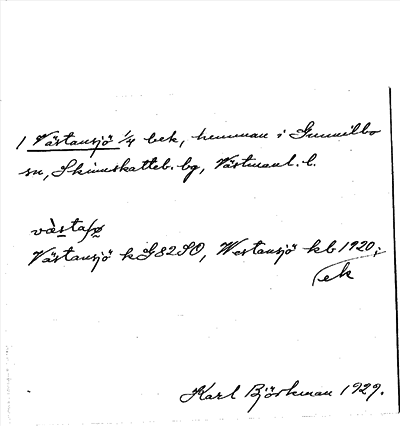 1 Västansjö 1/4 bek, hemman i Gunnilbo
sn, Skinnskatteb. bg, Västmanl. l.
vàstaʃø
Västansjö kG82SO, Westansjö kb 1920;
ek
Karl Björkman 1929.